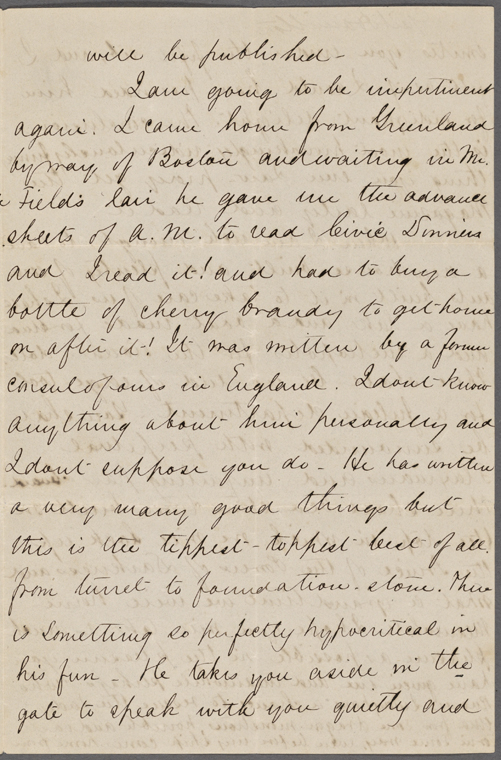 will be published -
I am going to be impertinent
again. I came home from Greenland
by way of Boston and waiting in Mr.
Field's lair he gave me the advance
sheets of A. M. to read Civic Dinners
and I read it! and had to buy a
bottle of cherry brandy to get home
on after it! It was written by a former
consul of ours in England. I dont know
anything about him personally and
I dont suppose you do - He has written
a very many good things but
this is the tippest-toppest best of all.
from turret to foundation-stone. There
is something so perfectly hypocritical in
his fun - He takes you aside in the
gate to speak with you quietly and